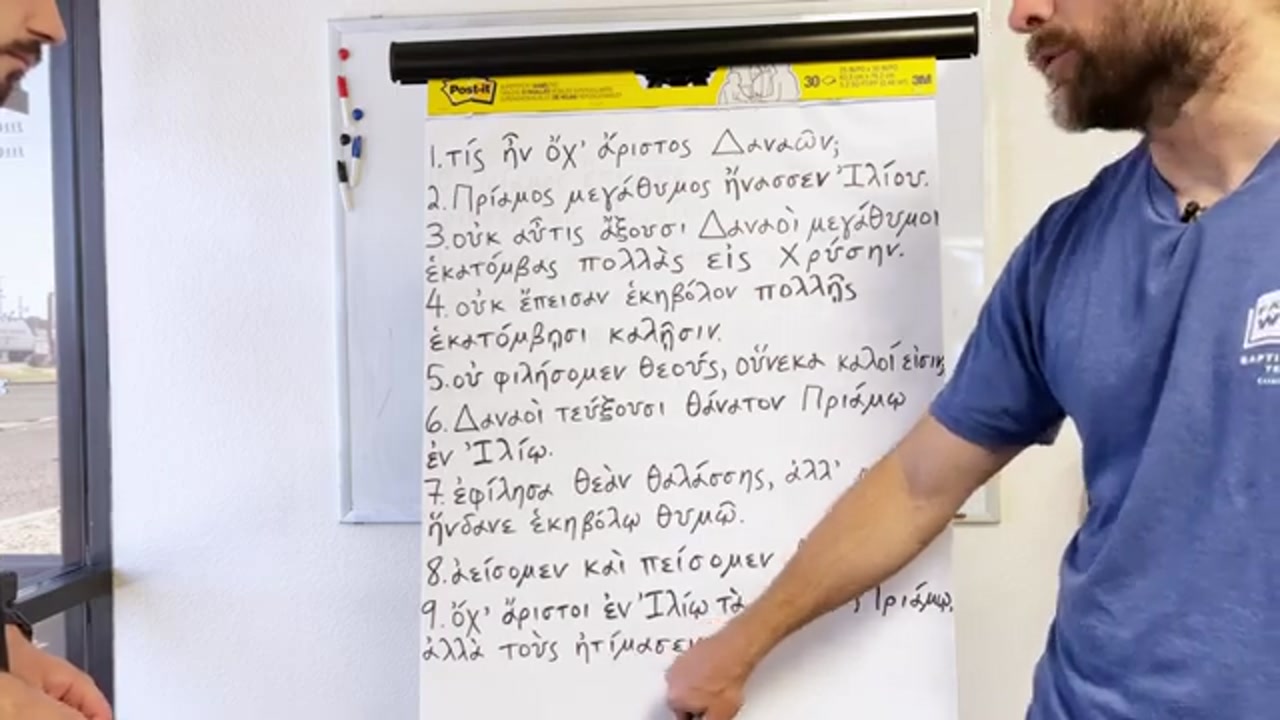 Post-it
30
3M
1. τίς ἦν ὄχ' ἄριστος Δαναῶν;
2. Πρίαμος μεγάθυμος ἤνασσεν Ἰλίου.
3. οὐκ αὖτις ἄξουσι Δαναοὶ μεγάθυμοι
ἑκατόμβας πολλὰς εἰς Χρύσην.
4. οὐκ ἔπεισαν ἑκηβόλον πολλῇς
ἑκατόμβῃσι καλῇσιν.
5. οὐ φιλήσομεν θεούς, οὕνεκα καλοί εἰσιν
6. Δαναοὶ τεύξουσι θάνατον Πριάμῳ
ἐν Ἰλίῳ.
7. ἐφίλησα θεὰν θαλάσσης, ἀλλ'
ἥνδανε ἑκηβόλῳ θυμῷ.
8. ἀείσομεν καὶ πείσομεν
9. ὄχ' ἄριστοι ἐν Ἰλίῳ τὰ Πριάμῳ,
ἀλλὰ τοὺς ἠτίμασεν